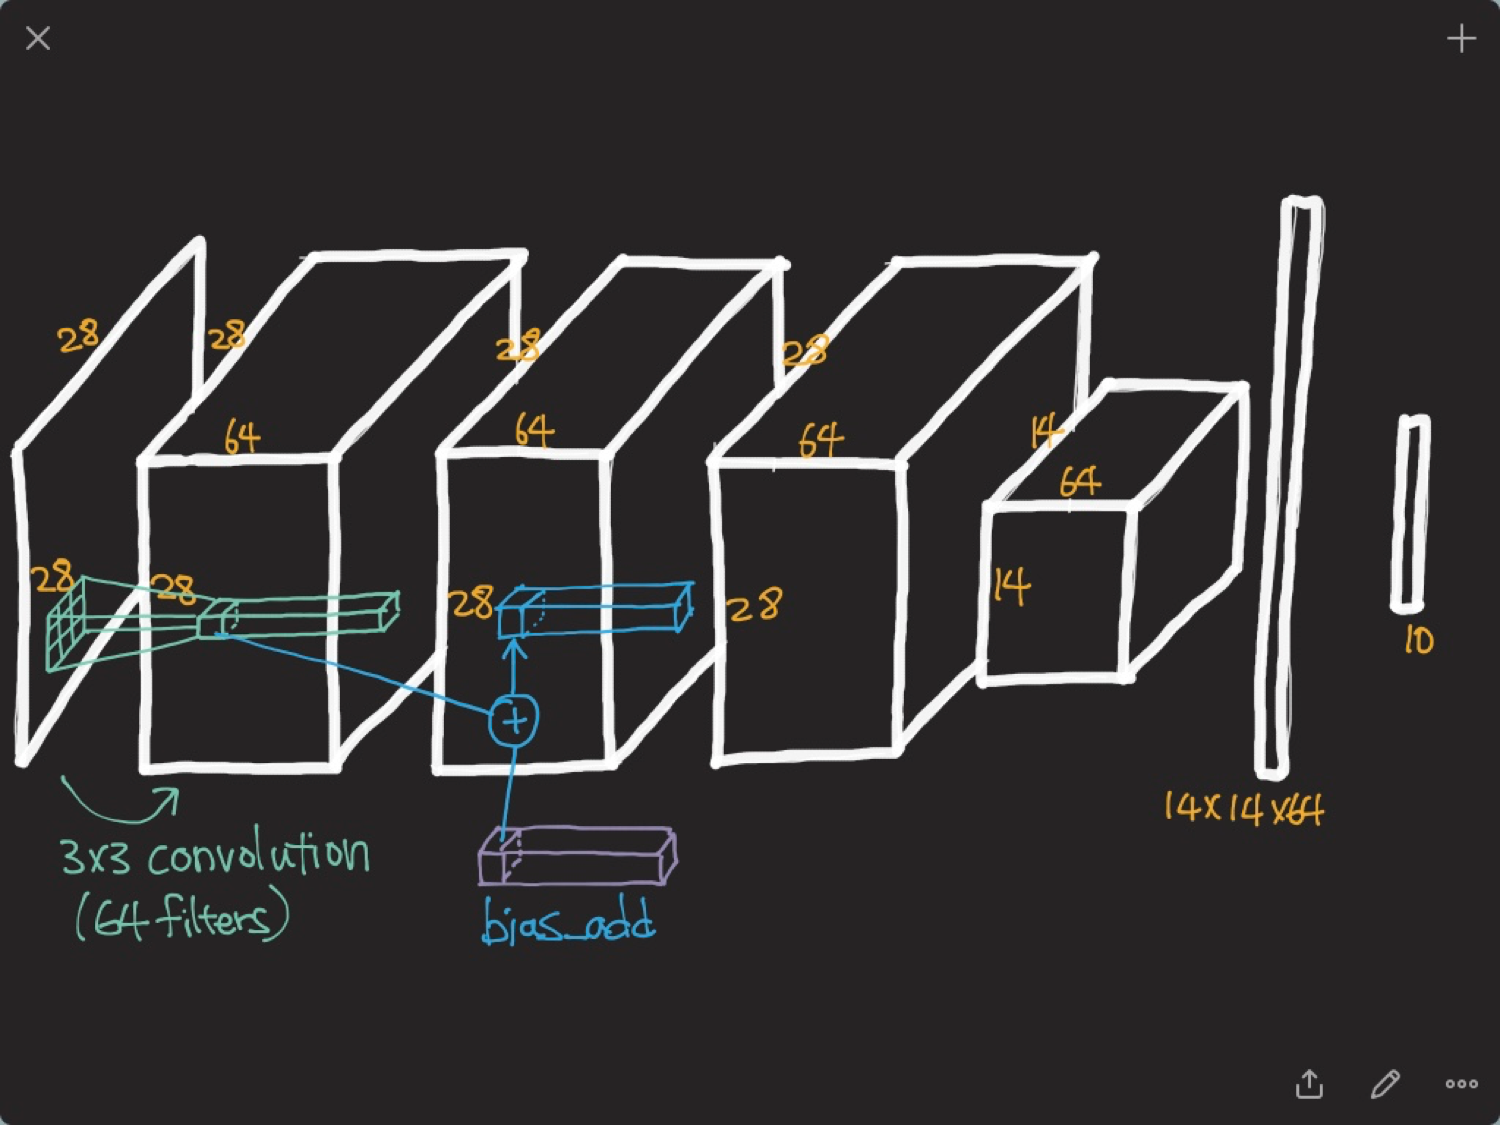 28
28
28
28
64
64
64
14
64
28
28
28
28
14
10
14x14x64
3x3 convolution
(64 filters)
+
bias_add